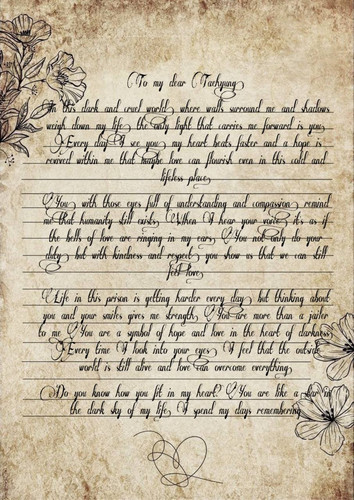 To my dear Taehyung
In this dark and cruel world, where walls surround me and shadows
weigh down my life, the only light that carries me forward is you.
Every day I see you, my heart beats faster and a hope is
revived within me that maybe love can flourish even in this cold and
lifeless place.
You, with those eyes full of understanding and compassion, remind
me that humanity still exists. When I hear your voice, it's as if
the bells of love are ringing in my ears. You not only do your
duty, but with kindness and respect, you show us that we can still
feel love.
Life in this prison is getting harder every day, but thinking about
you and your smiles gives me strength. You are more than a jailer
to me. You are a symbol of hope and love in the heart of darkness.
Every time I look into your eyes, I feel that the outside
world is still alive and love can overcome everything.
Do you know how you fit in my heart? You are like a star in
the dark sky of my life. I spend my days remembering